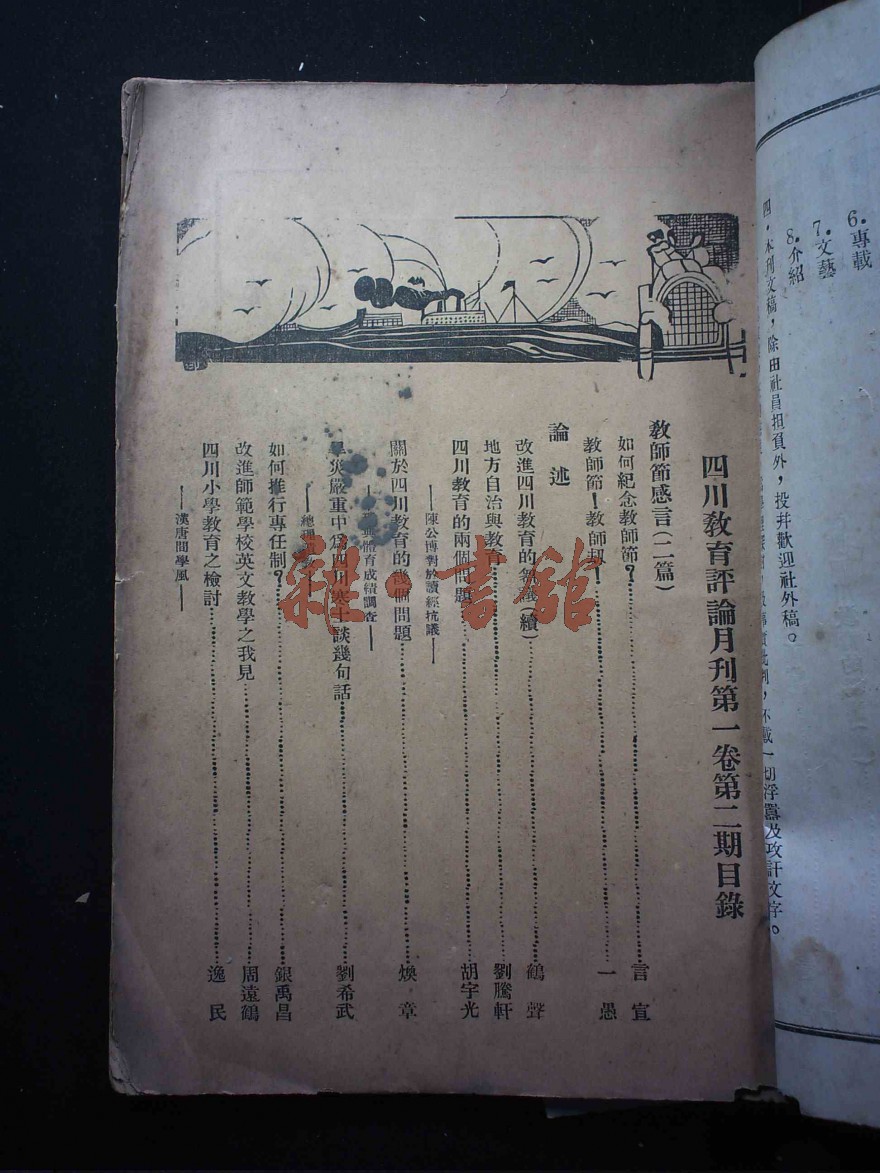 6.專載
7.文藝
8.介紹
四.本刊文稿,除由社員担負外,投井歡迎社外稿。
不載一切浮囂及攻訐文字。
四川教育評論月刊第一卷第二期目錄
教師節感言(二篇)
如何紀念教師節?言宣
教師節!教師刼!一愚
論述
改進四川教育的芻議(續)鶴聲
地方自治與教育劉騰軒
四川教育的兩個問題胡宇光
——陳公博對於讀經抗議——
關於四川教育的幾個問題煥章
體育成績調查——
旱災嚴重中為四川寒士談幾句話劉希武
如何推行專任制?銀禹昌
改進師範學校英文教學之我見周遠鶴
四川小學教育之檢討逸民
——漢唐間學風——
雜·書館